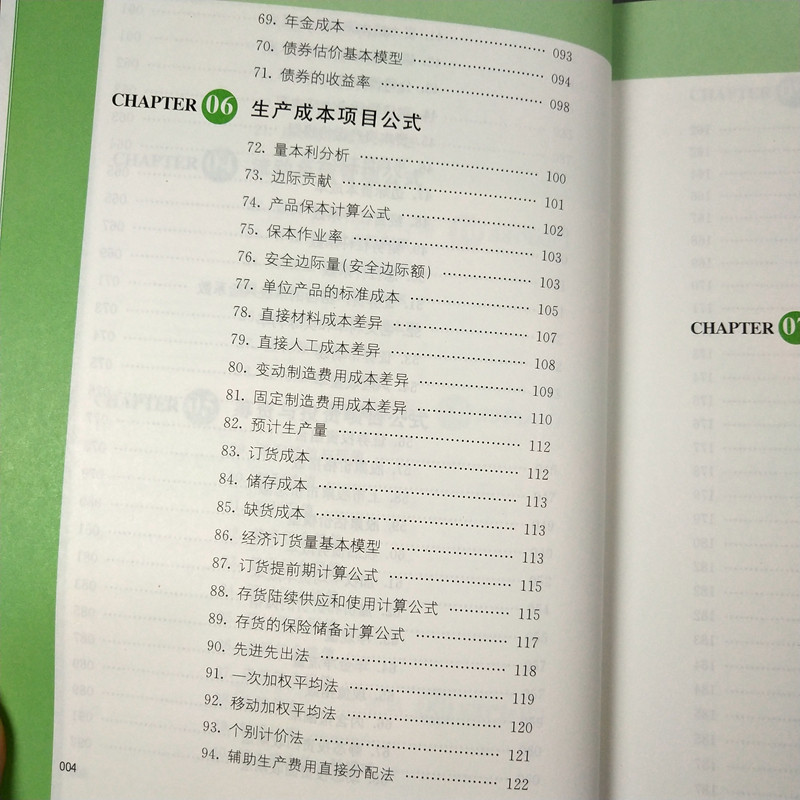 69. 年金成本 093
70. 债券估价基本模型 094
71. 债券的收益率 098
CHAPTER 06 生产成本项目公式
72. 量本利分析 100
73. 边际贡献 101
74. 产品保本计算公式 102
75. 保本作业率 103
76. 安全边际量(安全边际额) 103
77. 单位产品的标准成本 105
78. 直接材料成本差异 107
79. 直接人工成本差异 108
80. 变动制造费用成本差异 109
81. 固定制造费用成本差异 110
82. 预计生产量 112
83. 订货成本 112
84. 储存成本 113
85. 缺货成本 113
86. 经济订货量基本模型 113
87. 订货提前期计算公式 115
88. 存货陆续供应和使用计算公式 115
89. 存货的保险储备计算公式 117
90. 先进先出法 118
91. 一次加权平均法 119
92. 移动加权平均法 120
93. 个别计价法 121
94. 辅助生产费用直接分配法 122
004
CHAPTER 07